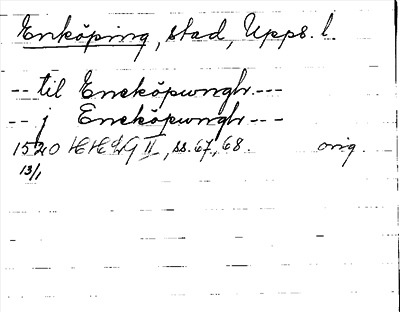 Enköping, stad, Upps. l.
-- til Eneköpungh ---
-- j Eneköpungh ---
1520 HH II, ss. 67, 68. orig.
13/1